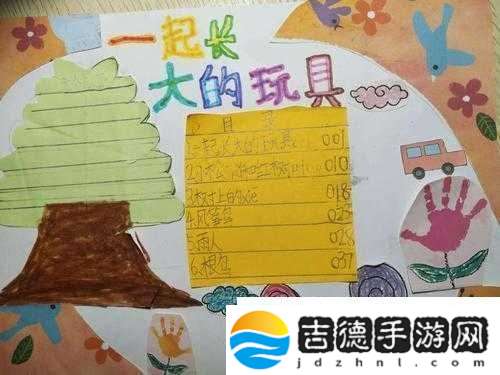 一起长
大的玩具
目录
1.一起长大的玩具 001
010
3.树上的 018
4.风筝
5.雨人 028
6.根鸟 037
吉德手游网
jdzhnl.com